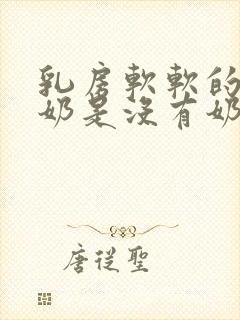 乳房軟軟的
奶是沒有奶
唐從聖